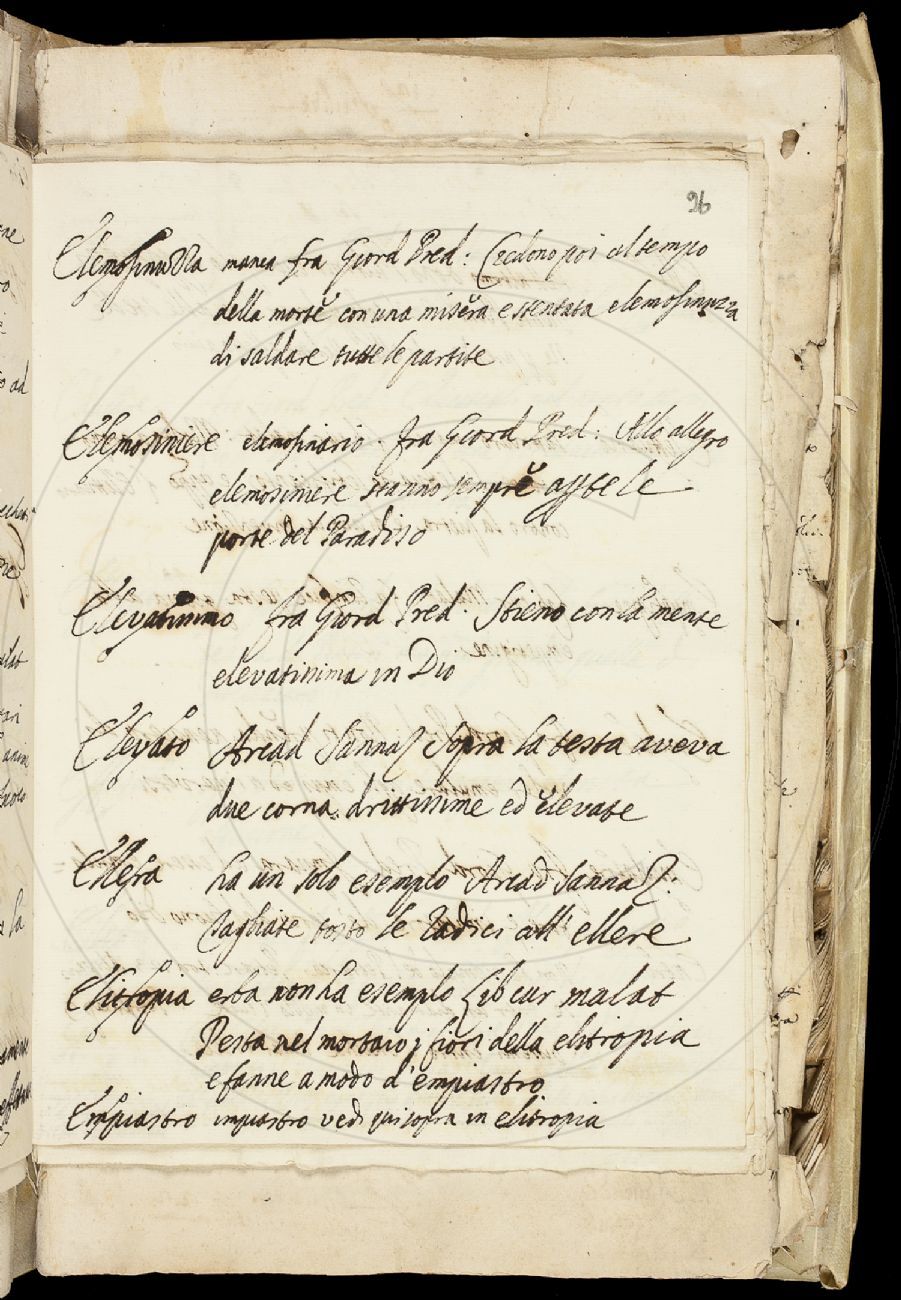 26
Elemosinuzza manca fra Giord Pred: Credono poi al tempo
della morte con una misera e stentata elemosinuzza
di saldare tutte le partite
Elemosiniere elemosinario. fra Giord Pred: Allo allegro
elemosiniere stanno sempre apte le
porte del Paradiso
Elevatissimo fra Giord Pred. Stieno con la mente
elevatissima in Dio
Elevato Arcad Sannaz Sopra la testa aveva
due corna drittissime ed elevate
Ellera ha un solo esemplo Arcad Sannaz:
tagliate tosto le radici all' ellere
Elitropia erba non ha esemplo Lib cur malat
Pesta nel mortaio i fiori della elitropia
e fanne a modo d'empiastro
Empiastro impiastro vedi qui sopra in elitropia